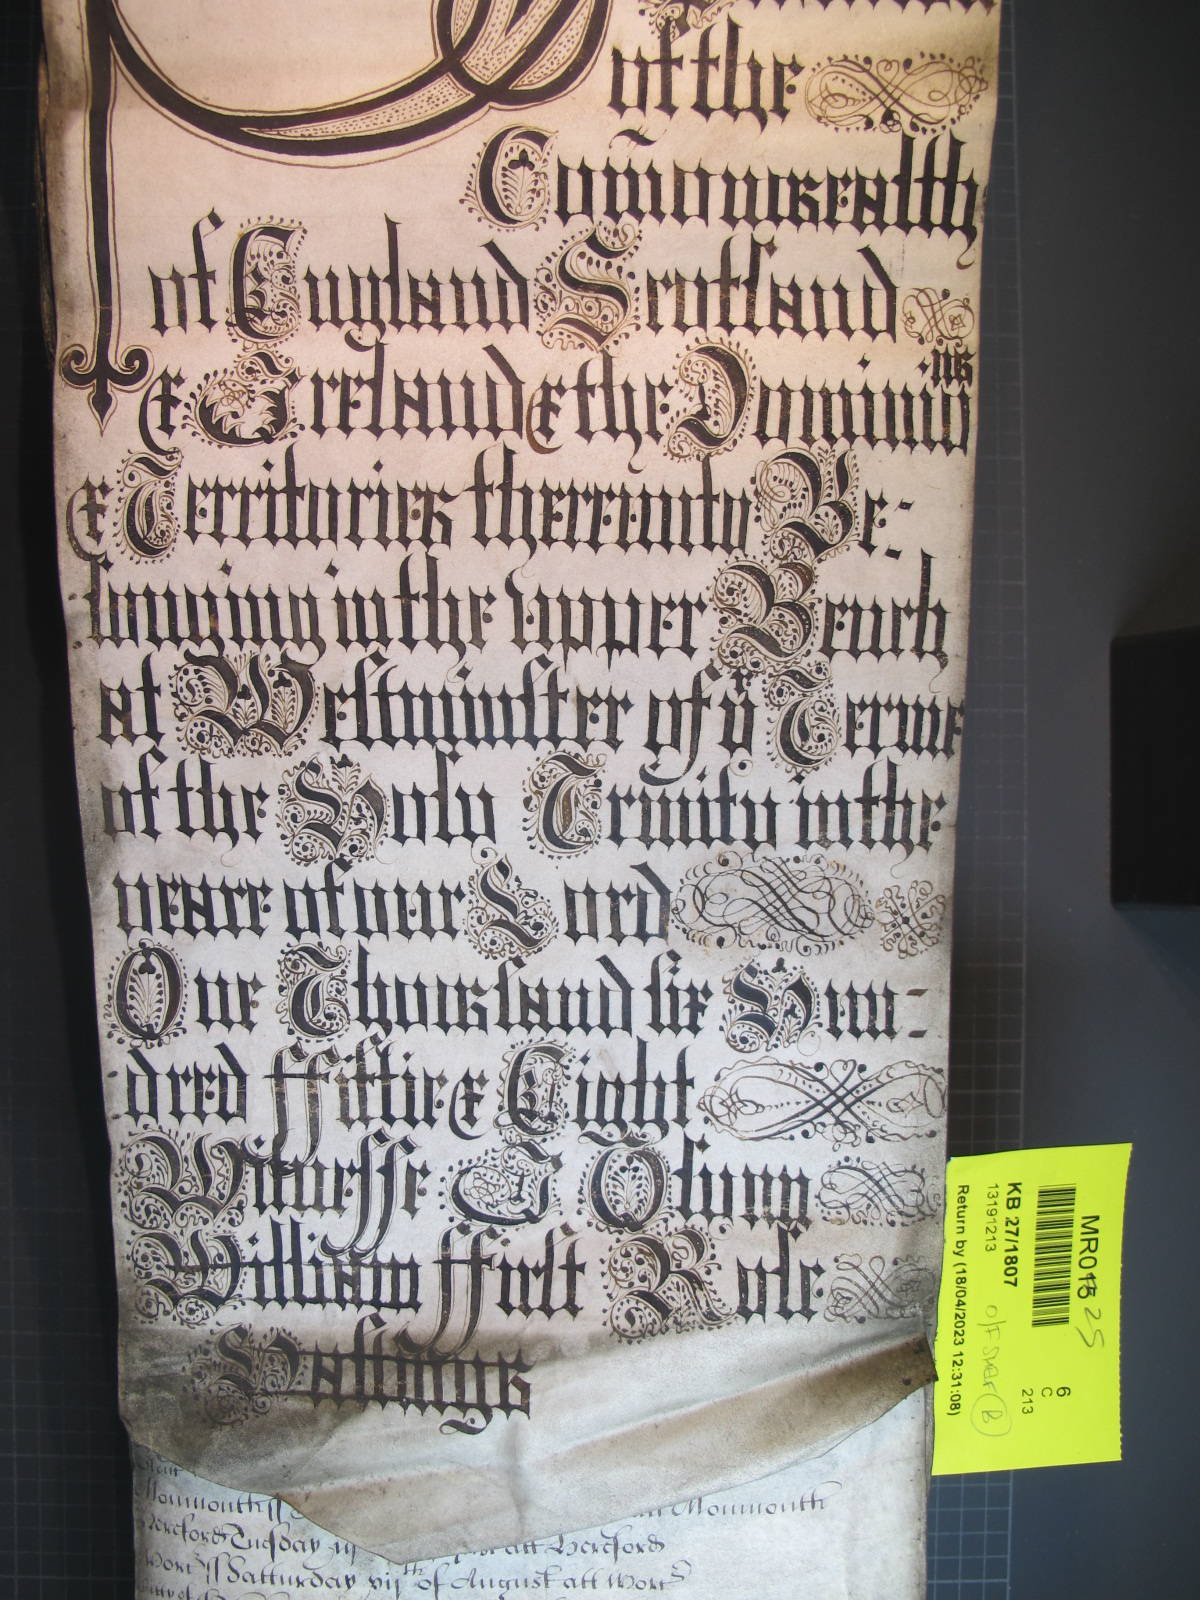 of the
Com̃onwealth
of England Scotland
& Ireland & the Dominio
ns
& Territories thereunto Be-
longing in the upper Bench
at Westminster of yͤ Terme
of the Holy Trinity in the
yeare of our Lord
One Thousand six Hun-
dred ffiftie & Eight
Witnesse I Glynn
William ffirst Role
Hastings
Monmouth ss Monmouth
Hereford Tuesday att Hereford
Worc ss Satturday viijth of August att Worc
MR018 25
KB 27/1807
13191213
Return by (18/04/2023 12:31:08)
6
C
213
B